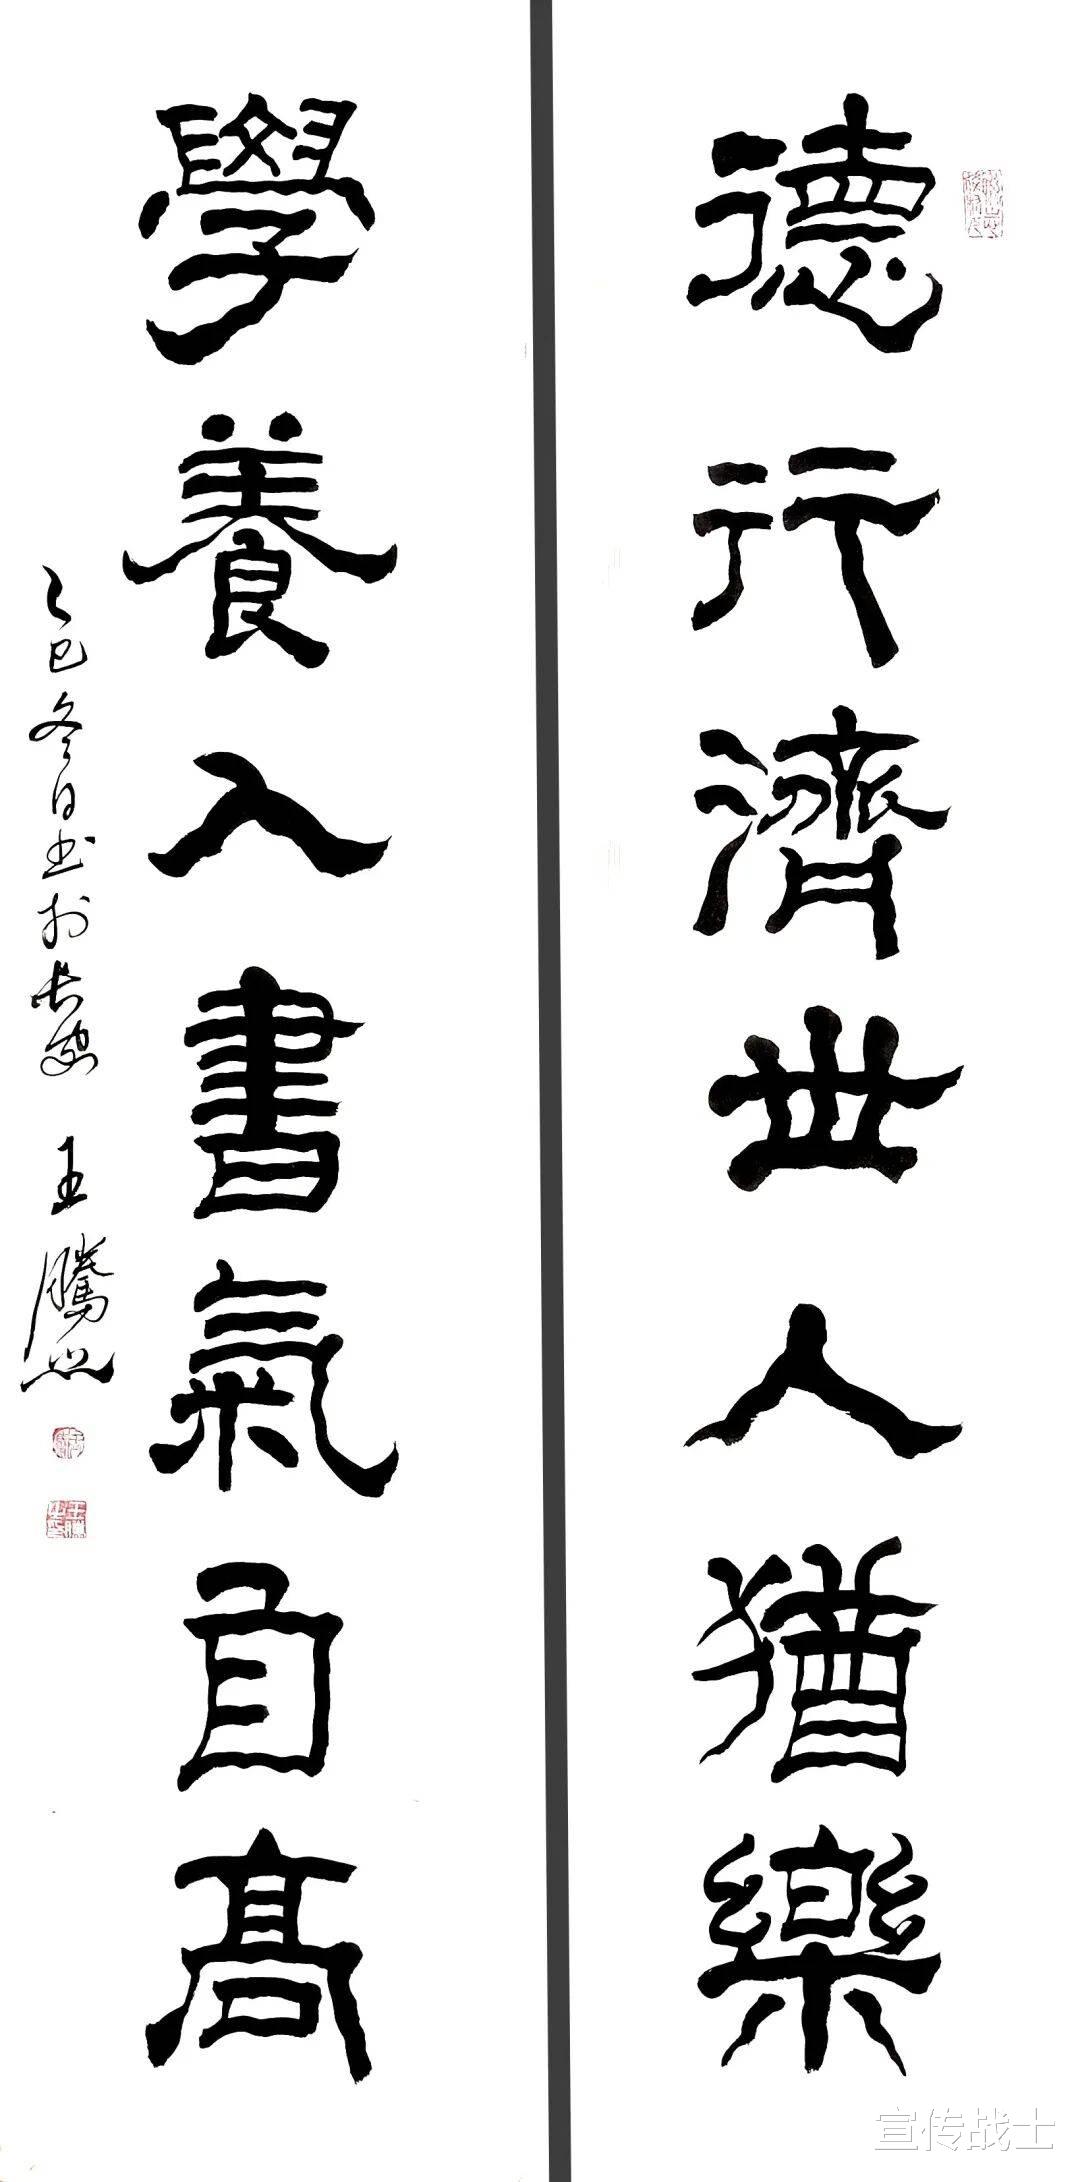 德行濟世人猶樂
學養入書氣自高
乙巳冬日书於長安 王騰
宣传战士